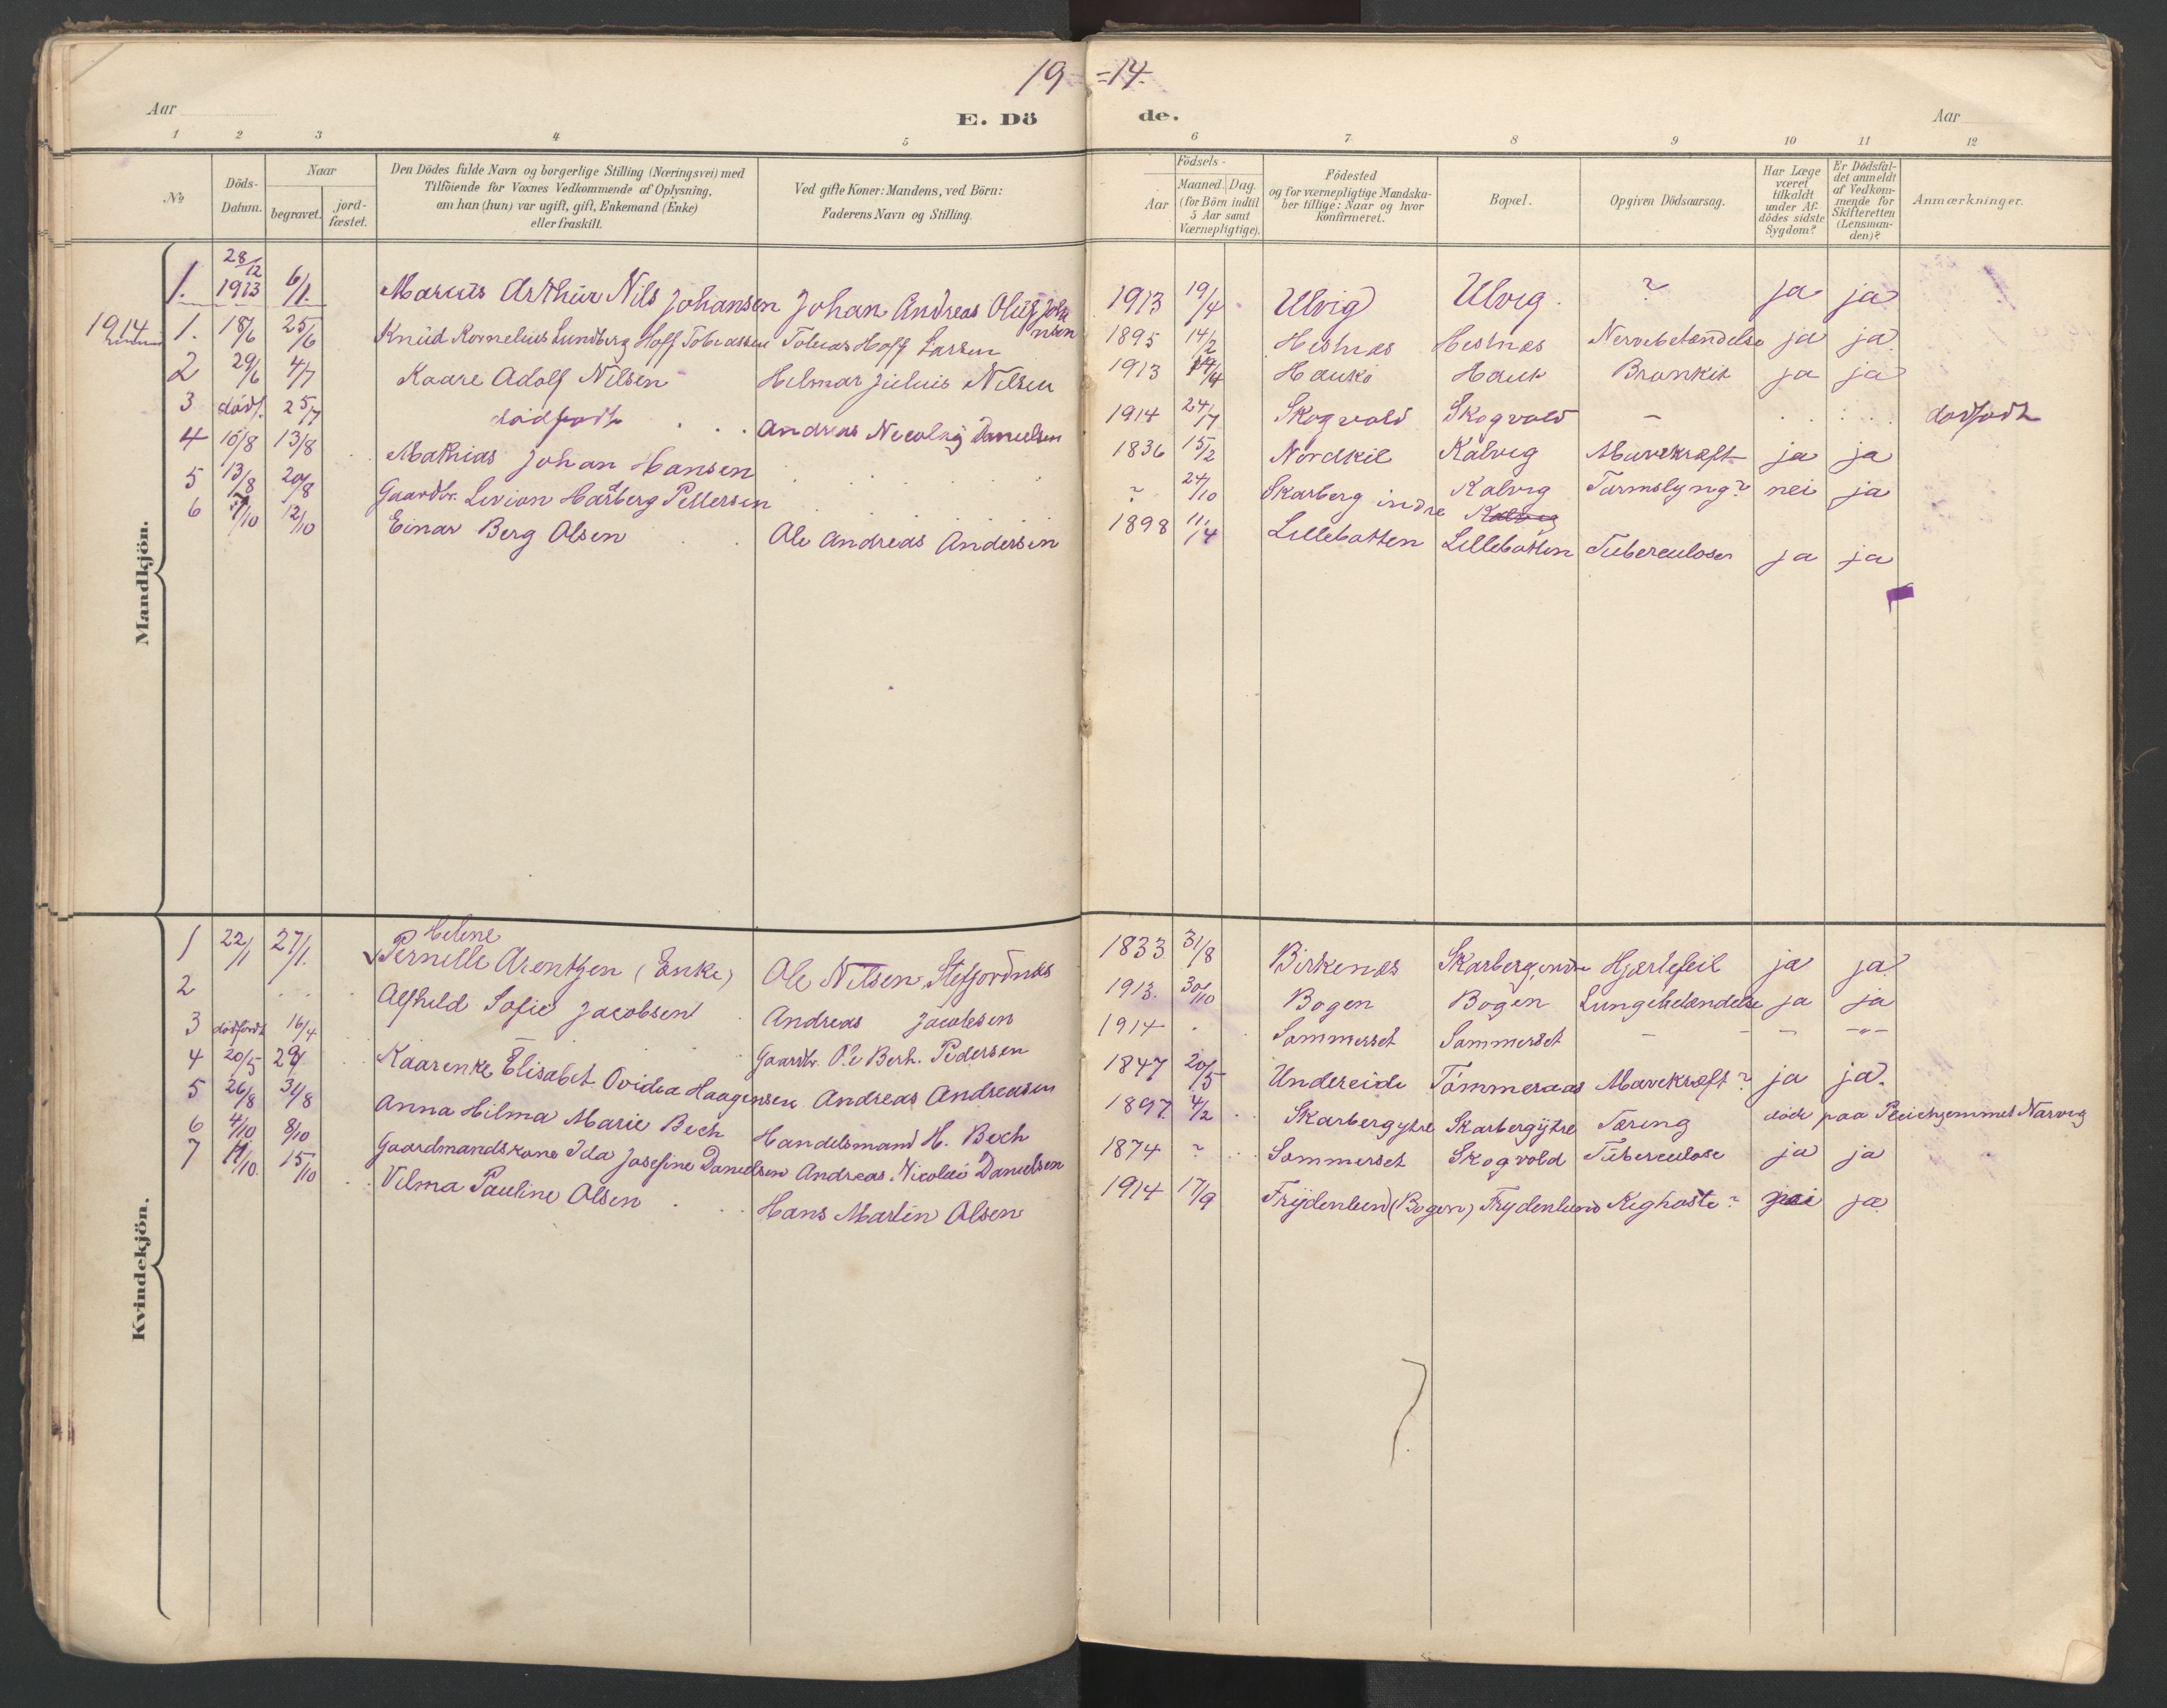 19 = 14.
Aar
E. Dö de.
Aar
1 2 3 4 5 6 7 8 9 10 11 12
No
Döds-Datum.
Naar
begravet.
jord-fæstet.
Den Dödes fulde Navn og borgerlige Stilling (Næringsvei) med
Tilföiende for Voxnes Vedkommende af Oplysning,
om han (hun) var ugift, gift, Enkemand (Enke)
eller fraskilt.
Ved gifte Koner: Mandens, ved Börn:
Faderens Navn og Stilling.
Födsels-
Aar
Maaned. Dag.
(for Börn indtil
5 Aar samt
Værnepligtige).
Födested
og for værnepligtige Mandska-
ber tillige: Naar og hvor
konfirmeret.
Bopæl.
Opgiven Dödsaarsag.
Har Læge
været
tilkaldt
under Af-
dödes sidste
Sygdom?
Er Dödsfal-
det anmeldt
af Vedkom-
mende for
Skifteretten
(Lensman-
den)?
Anmærkninger.
Mandkjön.
1. 28/12 1913 6/1. Marcus Arthur Nils Johansen Johan Andreas Oluf Johansen 1913 19/4 Ulvig Ulvig. ? ja ja
1914
1. 18/6 25/6 Knud Kornelius Lundberg Hoff Tobiassen Tobias Hoff Larsen 1895 14/2 Hesnæs Hesnæs Nervebetændelse ja ja
2 29/6 4/7 Kaare Adolf Nilsen Hilmar Julius Nilsen 1913 /4 Hauko Hauk Bronkit ja ja
3 dödf. 25/7 dödfödt Andreas Nicolaj Danielsen 1914 24/7 Skogvold Skogvold - dödfödt
4 10/8 13/8 Mathias Johan Hansen 1836 15/2 Nordkil Kalvig Mavekræft ja ja
5 13/8 20/8 Gaardbr. Levion Harberg Pettersen ? 24/10 Skarberg indre Kalvig Tarmslyng? nei ja
6 7/10 12/10 Einar Berg Olsen Ole Andreas Andersen 1898 11/4 Lillebotten Kalvig Lillebotten Tuberculoser ja ja
Kvindekjön.
1 22/1 27/1. Helene
Pernille Arentzen (Enke) Ole Nilsen Stefjordnæs 1833. 31/8 Birkenæs Skarberg indre Hjærtefeil ja ja
2 Alfhild Sofie Jacobsen Andreas Jacobsen 1913. 30/10 Bogen Bogen Lungebetændelse ja ja
3 dödfödt 16/4 Gaardbr. Ole Berh. Pedersen 1914 Sommerset Sommerset - - - -"-
4 20/5 29/ Kaarenke Elisabet Ovidia Haagensen Andreas Andreasen 1847 20/5 Undereide Tömmeraas Mavekræft? ja ja.
5 26/8 31/8 Anna Hilma Marie Bech Handelsmand H. Bech 1897. 4/2 Skarbergytre Skarbergytre Tæring döde paa Pleiehjemmet Narvig
6 4/10 8/10 Gaardmandskone Ida Josefine Danielsen Andreas Nicolai Danielsen 1874 ? Sommerset Skogvold Tuberculose ja ja
7 /10. 15/10 Vilma Pauline Olsen Hans Martin Olsen 1914 17/9 Frydenlund (Bogen) Frydenlund Kighoste? nei ja